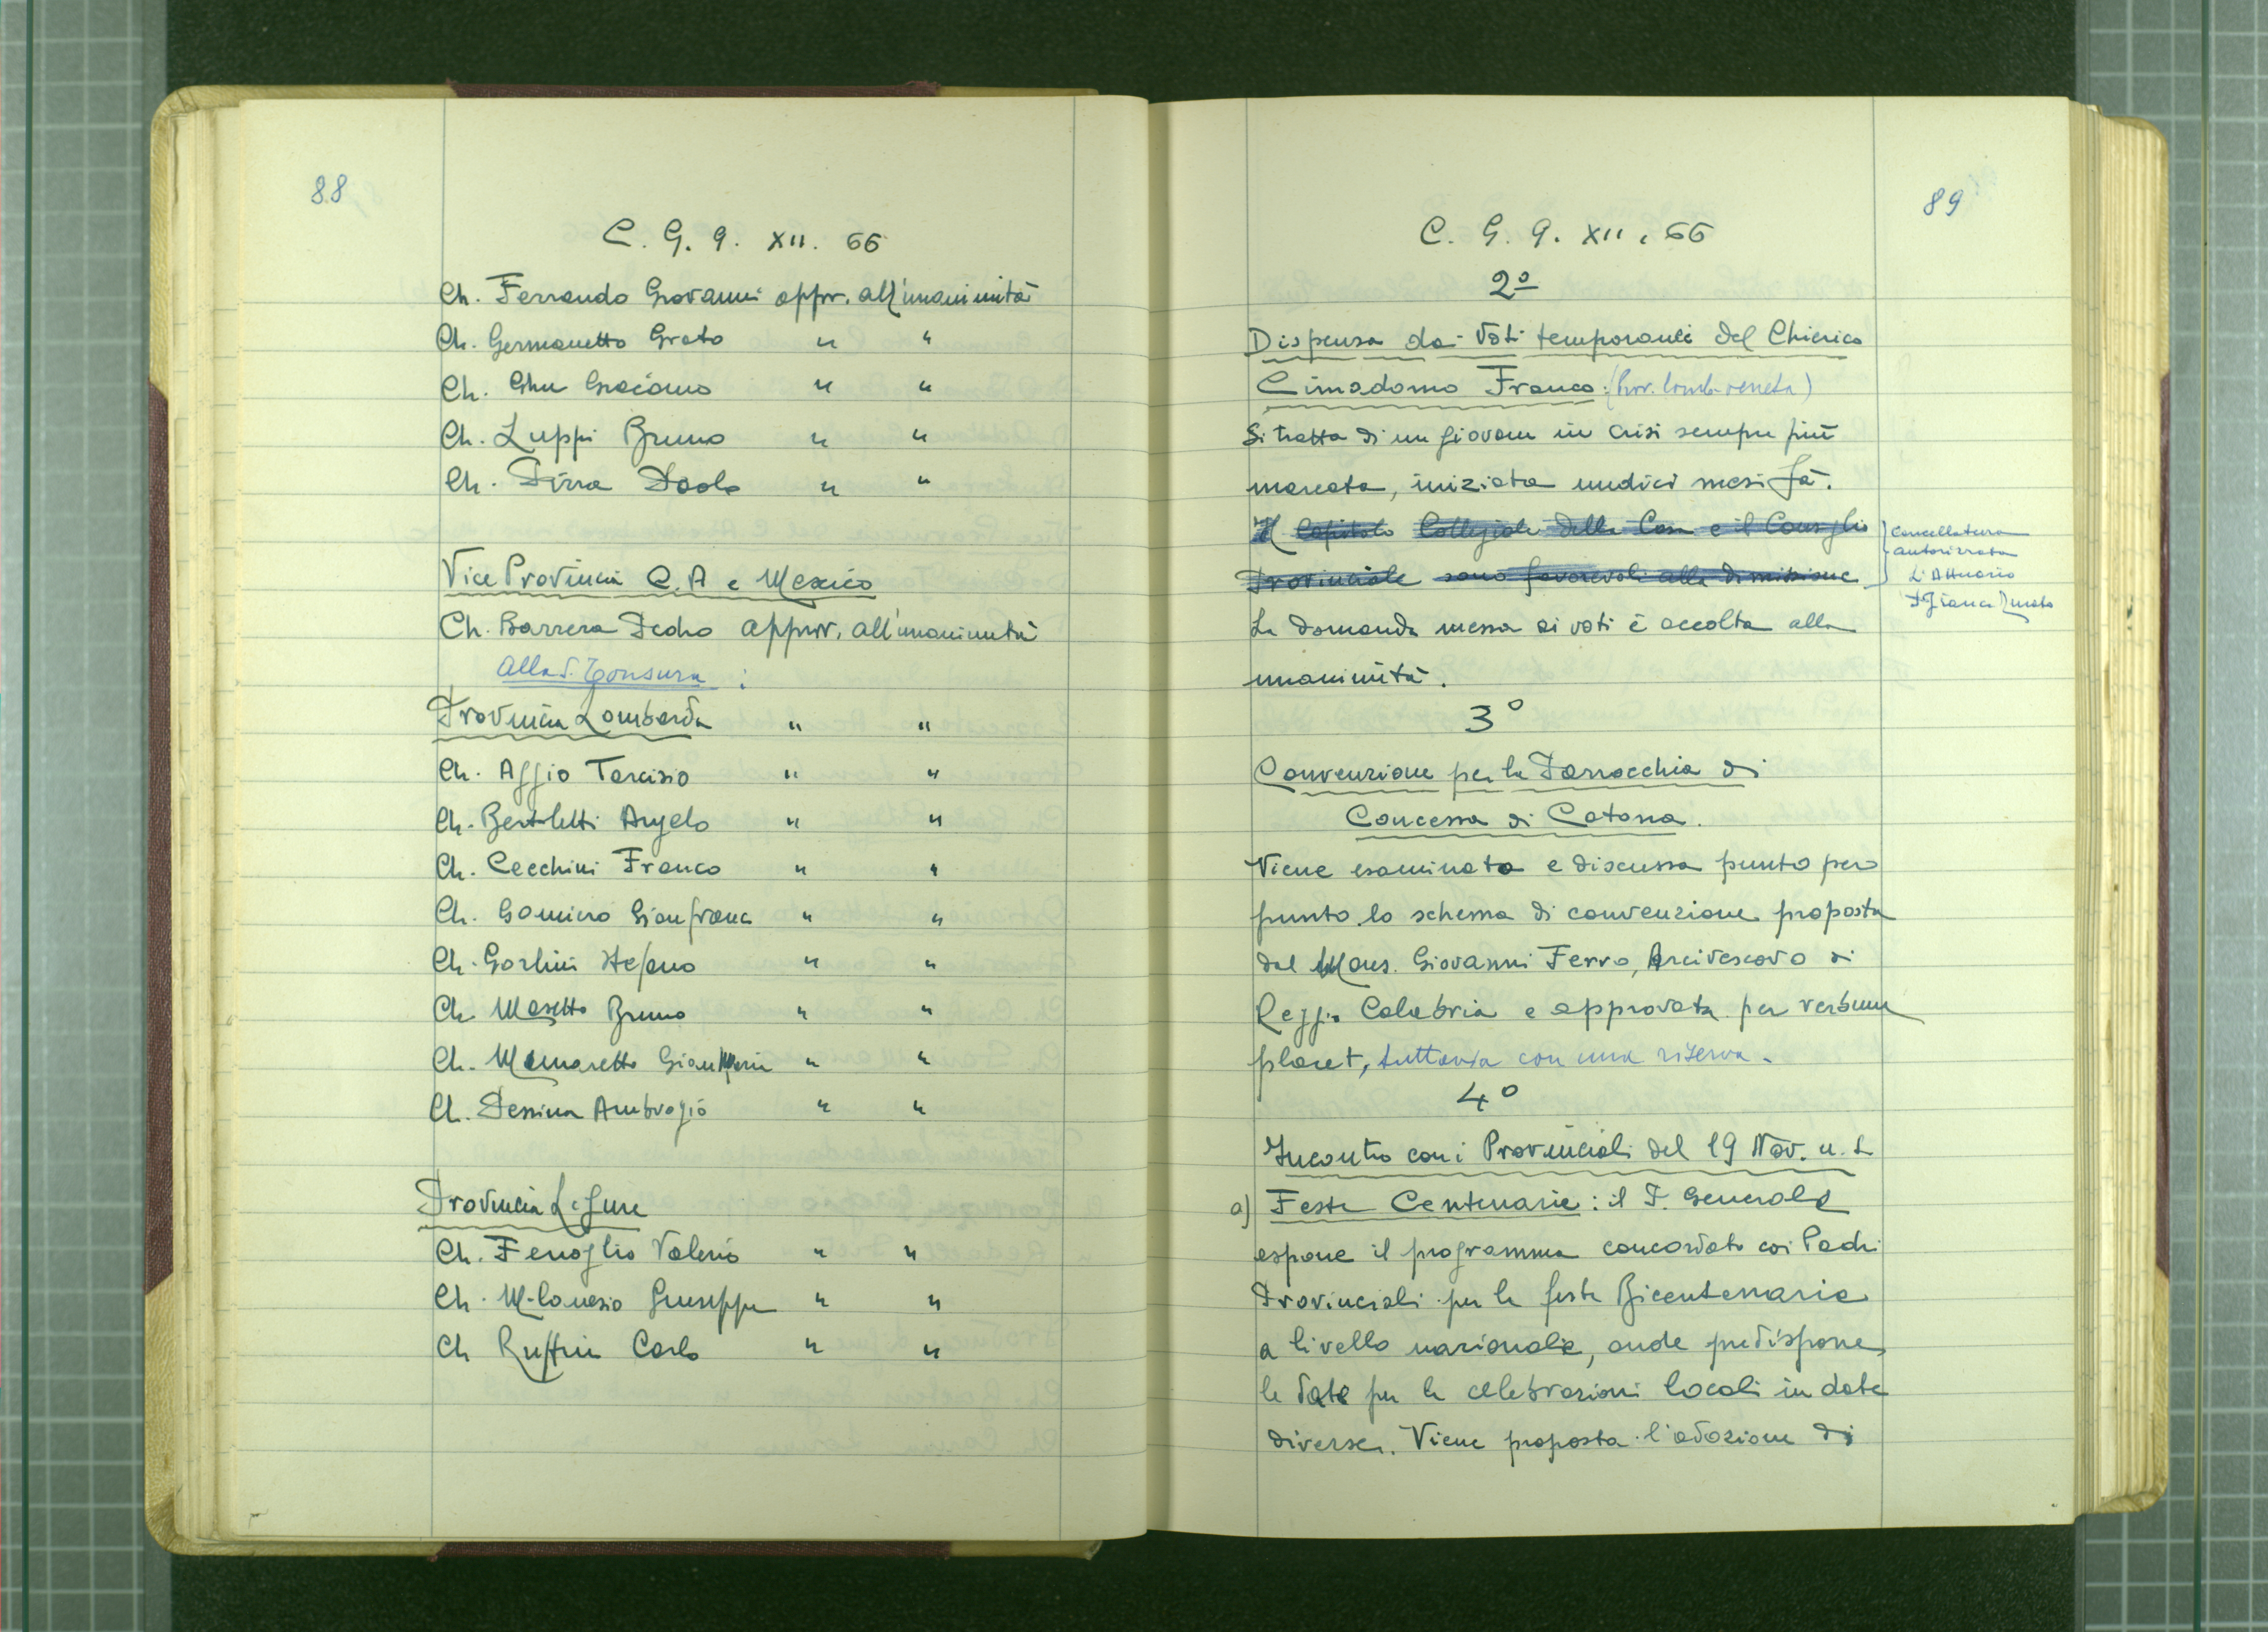 88
C. G. 9. XII. 66
Ch. Ferrando Giovanni appr. all'unanimità
Ch. Germanetto Grato " "
Ch. Ghu Giacomo " "
Ch. Luppi Bruno " "
Ch. Pirra Paolo " "
Vice Provincia C.A e Mexico
Ch. Barrera Pedro appr. all'unanimità
Alla S. Tonsura :
Provincia Lombarda " "
Ch. Aggio Tarcisio " "
Ch. Bertoletti Angelo " "
Ch. Cecchini Franco " "
Ch. Gomiero Gianfranc " "
Ch. Gorlini Stefano " "
Ch. Masetto Bruno " "
Ch. Munaretto " "
Ch. Pessina Ambrogio " "
Provincia Ligure
Ch. Fenoglio Valerio " "
Ch. Milanesio Giuseppe " "
Ch Ruffin Carlo " "
89
C. G. 9. XII. 66
2º
Dispensa dai Voti temporanei del Chierico
Cimadomo Franco: (Prov. lomb-veneta)
Si tratta di un giovane in crisi sempre più
marcata, iniziata undici mesi fà.
Il Capitolo Collegiale della Casa e il Consiglio
Provinciale sono favorevoli alla dimissione
cancellatura
autorizzata
L'Attuario
La domanda messa ai voti è accolta alla
unanimità.
3º
Convenzione per la Parrocchia di
Concessa di Catona.
Viene esaminata e discussa punto per
punto lo schema di convenzione proposta
dal Mons. Giovanni Ferro, Arcivescovo di
Reggio Calabria e approvata per verbum
placet, tuttavia con una riserva.
4º
Incontro con i Provinciali del 19 Nov. u. s.
a) Feste Centenarie: il P. Generale
espone il programma concordato coi Padri
Provinciali per le feste Bicentenarie
a livello nazionale, onde predispone
le date per le celebrazioni locali in date
diverse. Viene proposta l'adozione di